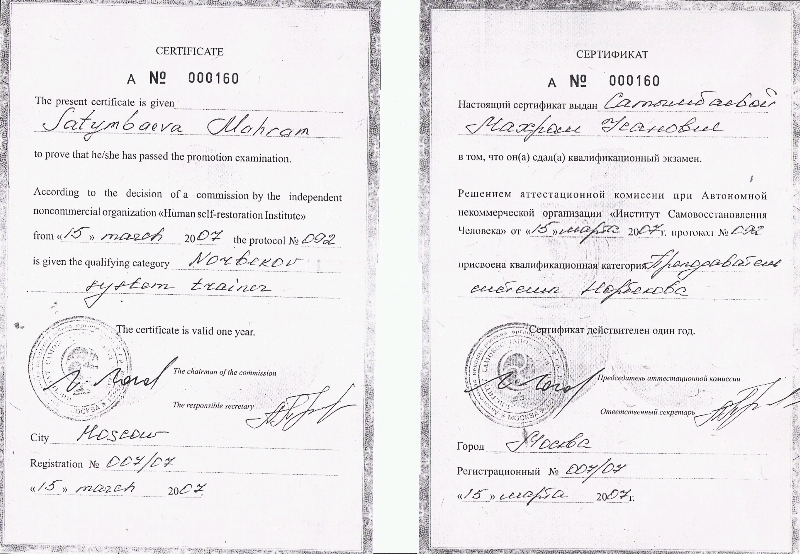 CERTIFICATE
A № 000160
The present certificate is given
Satymbaeva Mahram
to prove that he/she has passed the promotion examination.
According to the decision of a commission by the independent
noncommercial organization «Human self-restoration Institute»
from «15» march 2007 the protocol № 092
is given the qualifying category Norbekov
system trainer
The certificate is valid one year.
The chairman of the commission
The responsible secretary
City Moscow
Registration № 007/07
«15» march 2007
СЕРТИФИКАТ
А № 000160
Настоящий сертификат выдан Сатымбаевой
Махрам
в том, что он(а) сдал(а) квалификационный экзамен.
Решением аттестационной комиссии при Автономной
некоммерческой организации «Институт Самовосстановления
Человека» от «15» марта 2007г. протокол № 092
присвоена квалификационная категория Преподаватель
системы Норбекова
Сертификат действителен один год.
Председатель аттестационной комиссии
Ответственный секретарь
Город Москва
Регистрационный № 007/07
«15» марта 2007г.